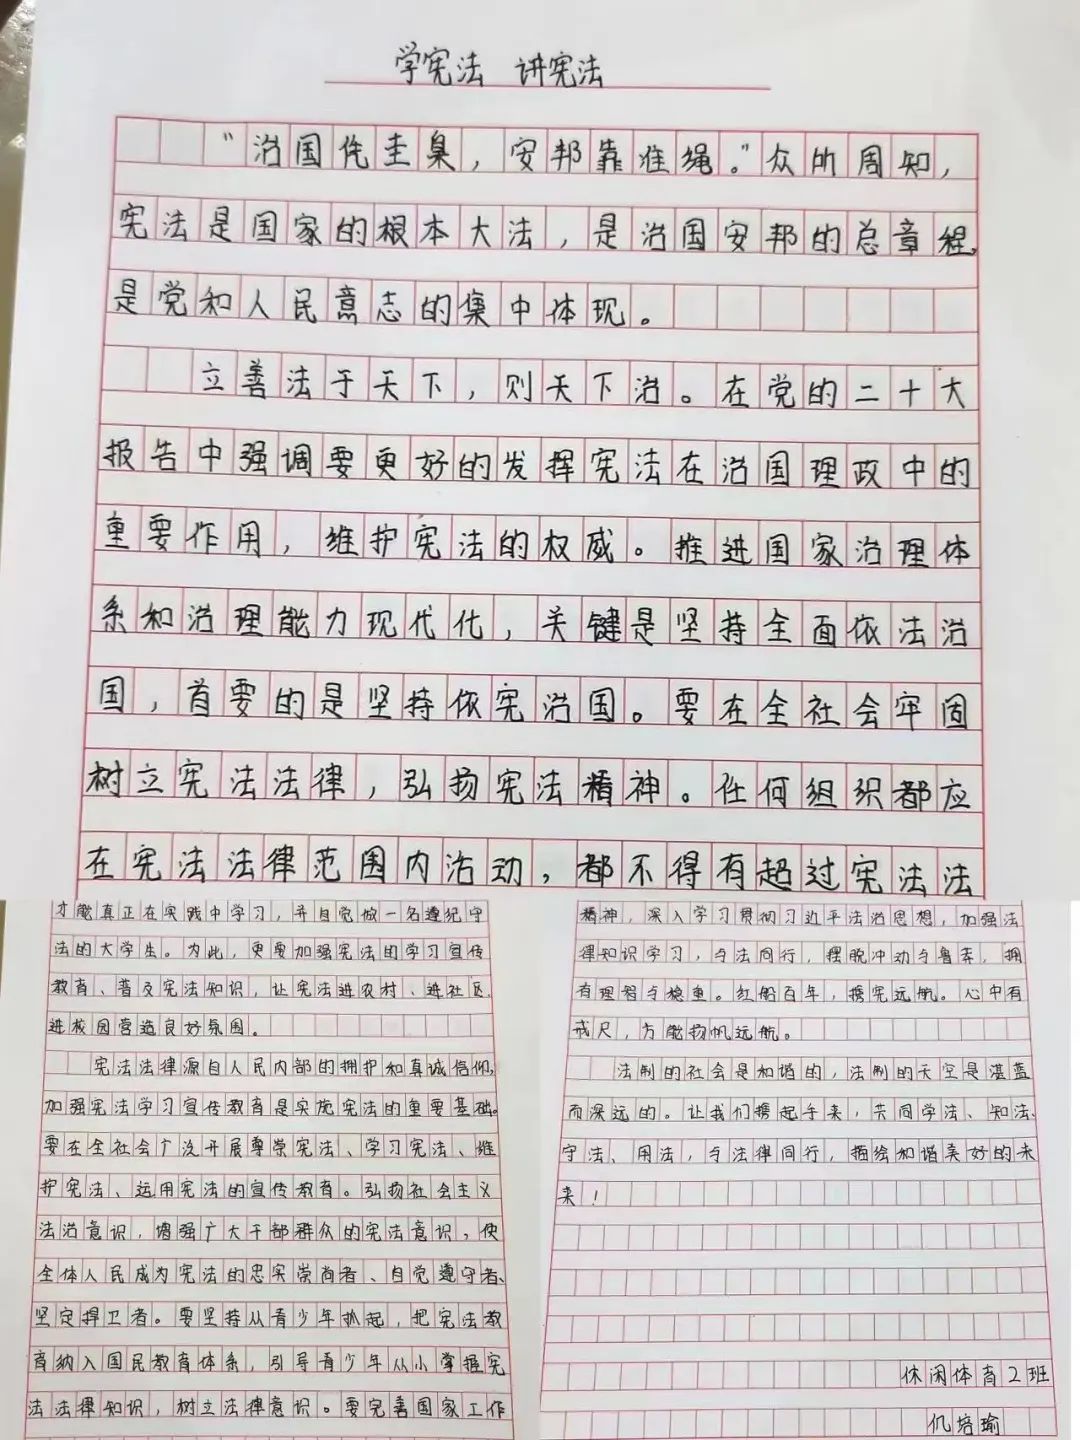 学宪法 讲宪法
“治国凭圭臬，安邦靠准绳。”众所周知，
宪法是国家的根本大法，是治国安邦的总章程，
是党和人民意志的集中体现。
立善法于天下，则天下治。在党的二十大
报告中强调要更好的发挥宪法在治国理政中的
重要作用，维护宪法的权威。推进国家治理体
系和治理能力现代化，关键是坚持全面依法治
国，首要的是坚持依宪治国。要在全社会牢固
树立宪法法律，弘扬宪法精神。任何组织都应
在宪法法律范围内活动，都不得有超过宪法法
才能真正在实践中学习，并自觉做一名遵纪守
法的大学生。为此，更要加强宪法的学习宣传
教育、普及宪法知识，让宪法进农村、进社区、
进校园营造良好氛围。
宪法法律源自人民内部的拥护和真诚信仰，
加强宪法学习宣传教育是实施宪法的重要基础。
要在全社会广泛开展尊崇宪法、学习宪法、维
护宪法、运用宪法的宣传教育。弘扬社会主义
法治意识，增强广大干部群众的宪法意识，使
全体人民成为宪法的忠实崇尚者、自觉遵守者、
坚定捍卫者。要坚持从青少年抓起，把宪法教
育纳入国民教育体系，引导青少年从小掌握宪
法法律知识，树立法律意识。要完善国家工作
精神，深入学习贯彻习近平法治思想，加强法
律知识学习，与法同行，摆脱冲动与鲁莽，拥
有理智与稳重。红船百年，携宪远航。心中有
戒尺，方能扬帆远航。
法制的社会是和谐的，法制的天空是湛蓝
而深远的。让我们携起手来，共同学法、知法、
守法、用法，与法律同行，描绘和谐美好的未
来！
休闲体育2班
仉培瑜